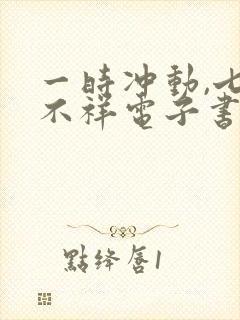 一時冲動,七
不祥電子書
點绛唇1